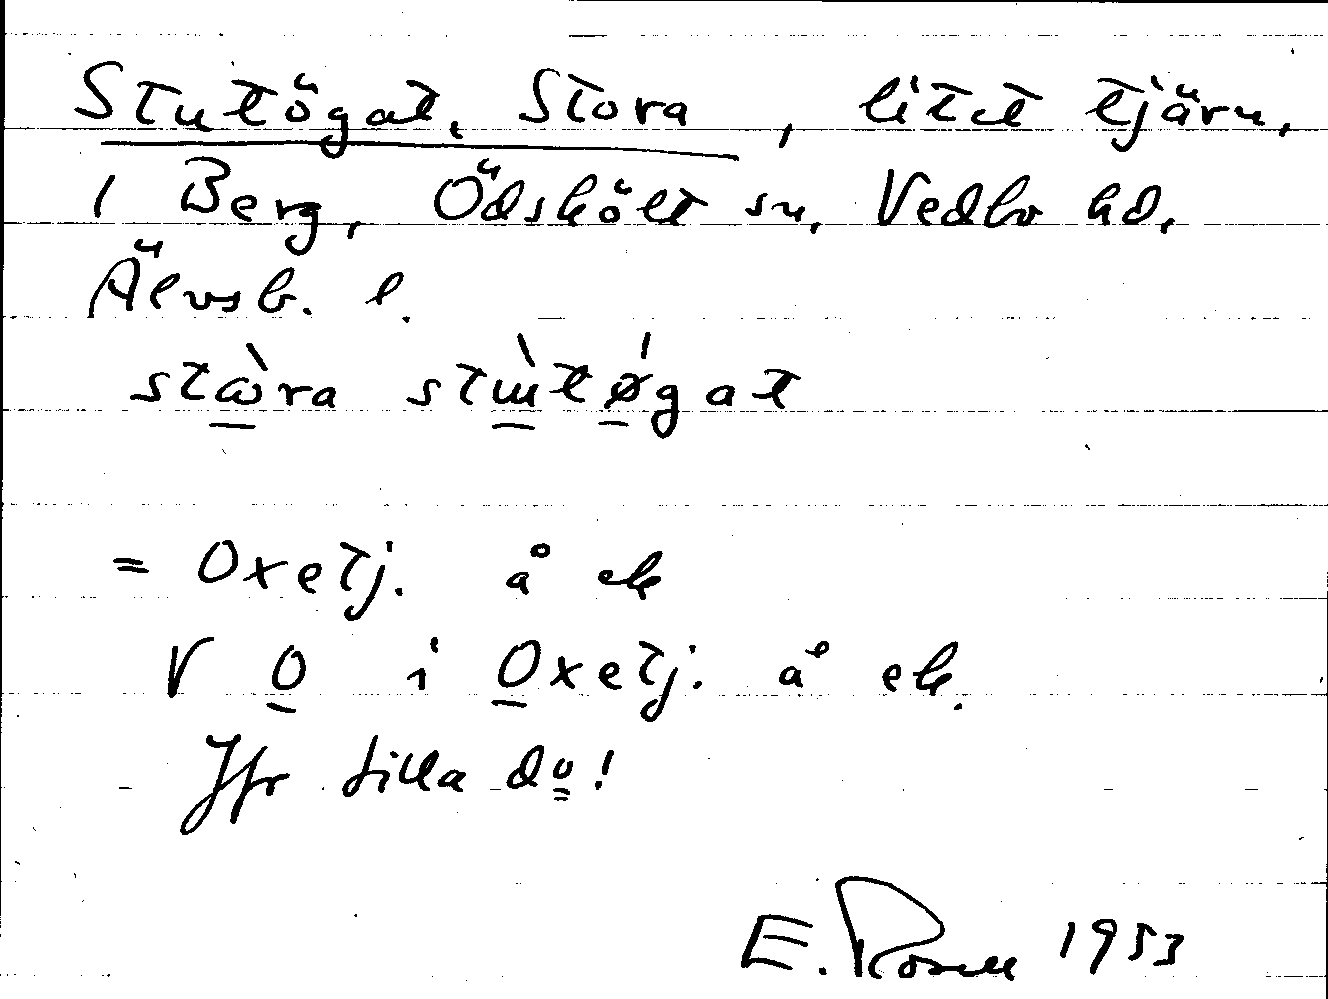 Stutögat, Stora, litet tjärn,
i Berg, Ödskölt sn, Vedbo hd,
Älvsb. l.
stɷ̀ra stɯ̀tǿgat
= Oxetj. å ek
V O i Oxetj. å ek.
Jfr Lilla do!
E. Rosell 1953